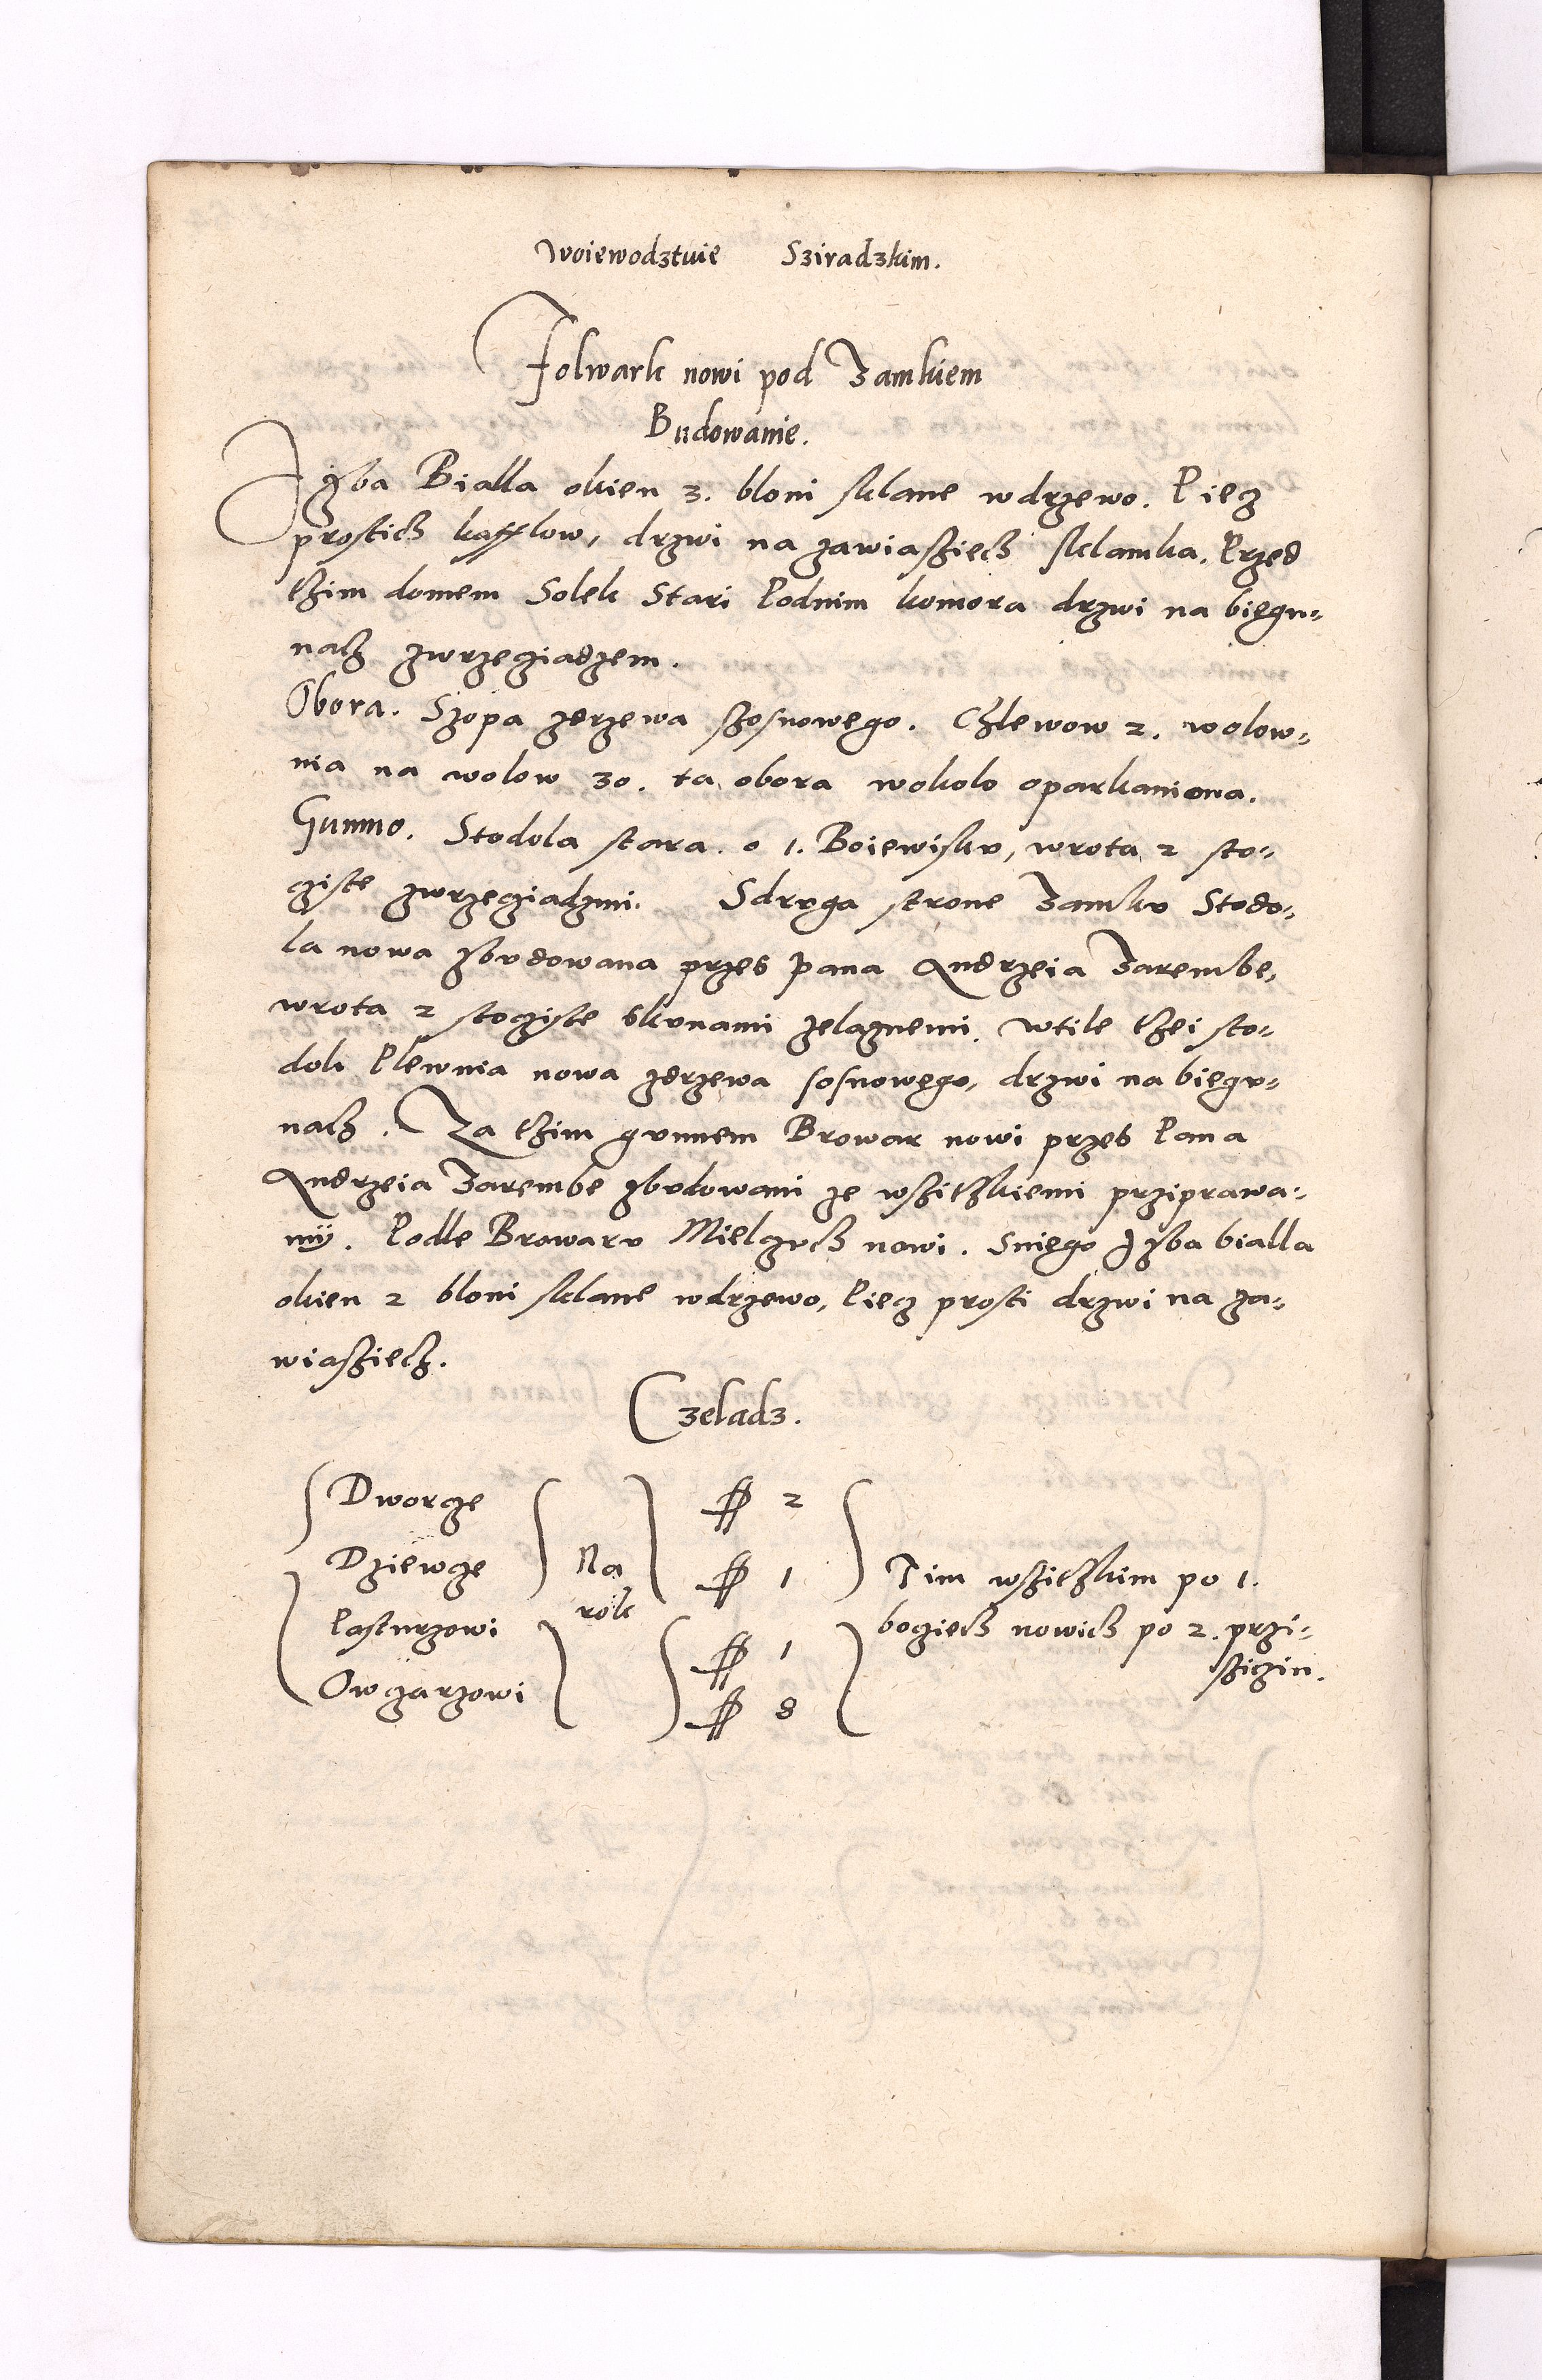 Woiewodztwie Sziradzkim.
Folwark nowi pod Zamkiem
Budowanie.
Izba Bialla okien 3. bloni sklane wdrzewo. Piecz
prostich kafflow, drzwi na zawiaßiech sklamka. Przed
thim domem Solek Stari Podnim komora drzwi na biegu=
nach zwrzecziadzem.
Obora. Szopa zdrzewa ßosnowego. Chlewow 2. wolow=
nia na wolow 30. ta obora wokolo oparkaniona.
Gumno. Stodola stara o 1. Boiewisku, wrota 2 sto=
giste zwrzecziadzmi. Sdruga strone Zamku Stodo=
la nowa zbudowana przes pana Andrzeia Zarembe,
wrota 2 stogiste skunami zelaznemi. Wtile thei sto=
doli Plewnia nowa zdrzewa sosnowego, drzwi na biegu=
nach. Za thim gumnem Browar nowi przes Pana
Andrzeia Zarembe zbudowani ze wßithkiemi prziprawa=
mÿ. Podle Browaru Mielczuch nowi. Sniego Izba bialla
okien 2 bloni sklane wdrzewo, Piecz prosti drzwi na za=
wiaßiech.
Czeladz.
Dworcze ƒƒ 2
Dziewcze Na ƒƒ 1 Tim wßithkim po 1.
Pasturzowi rok ƒƒ 1 bociech nowich po 2. przi=
Owczarzowi ƒƒ 8 ßiciu.